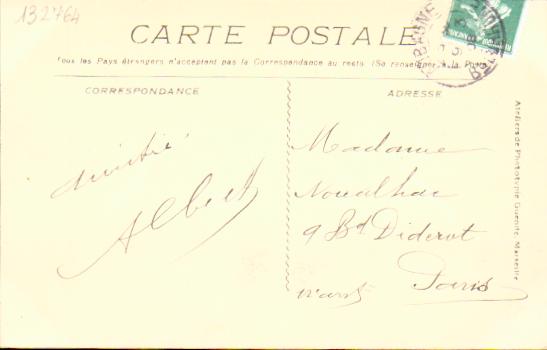 132764
CARTE POSTALE
Tous les Pays étrangers n'acceptent pas la Correspondance au recto. (Se renseigner à la Poste)
CORRESPONDANCE
ADRESSE
amitié
Albert
Madame
Noualhac
9 Bd Diderot
Paris
Ateliers de Phototypie Guende, Marseille